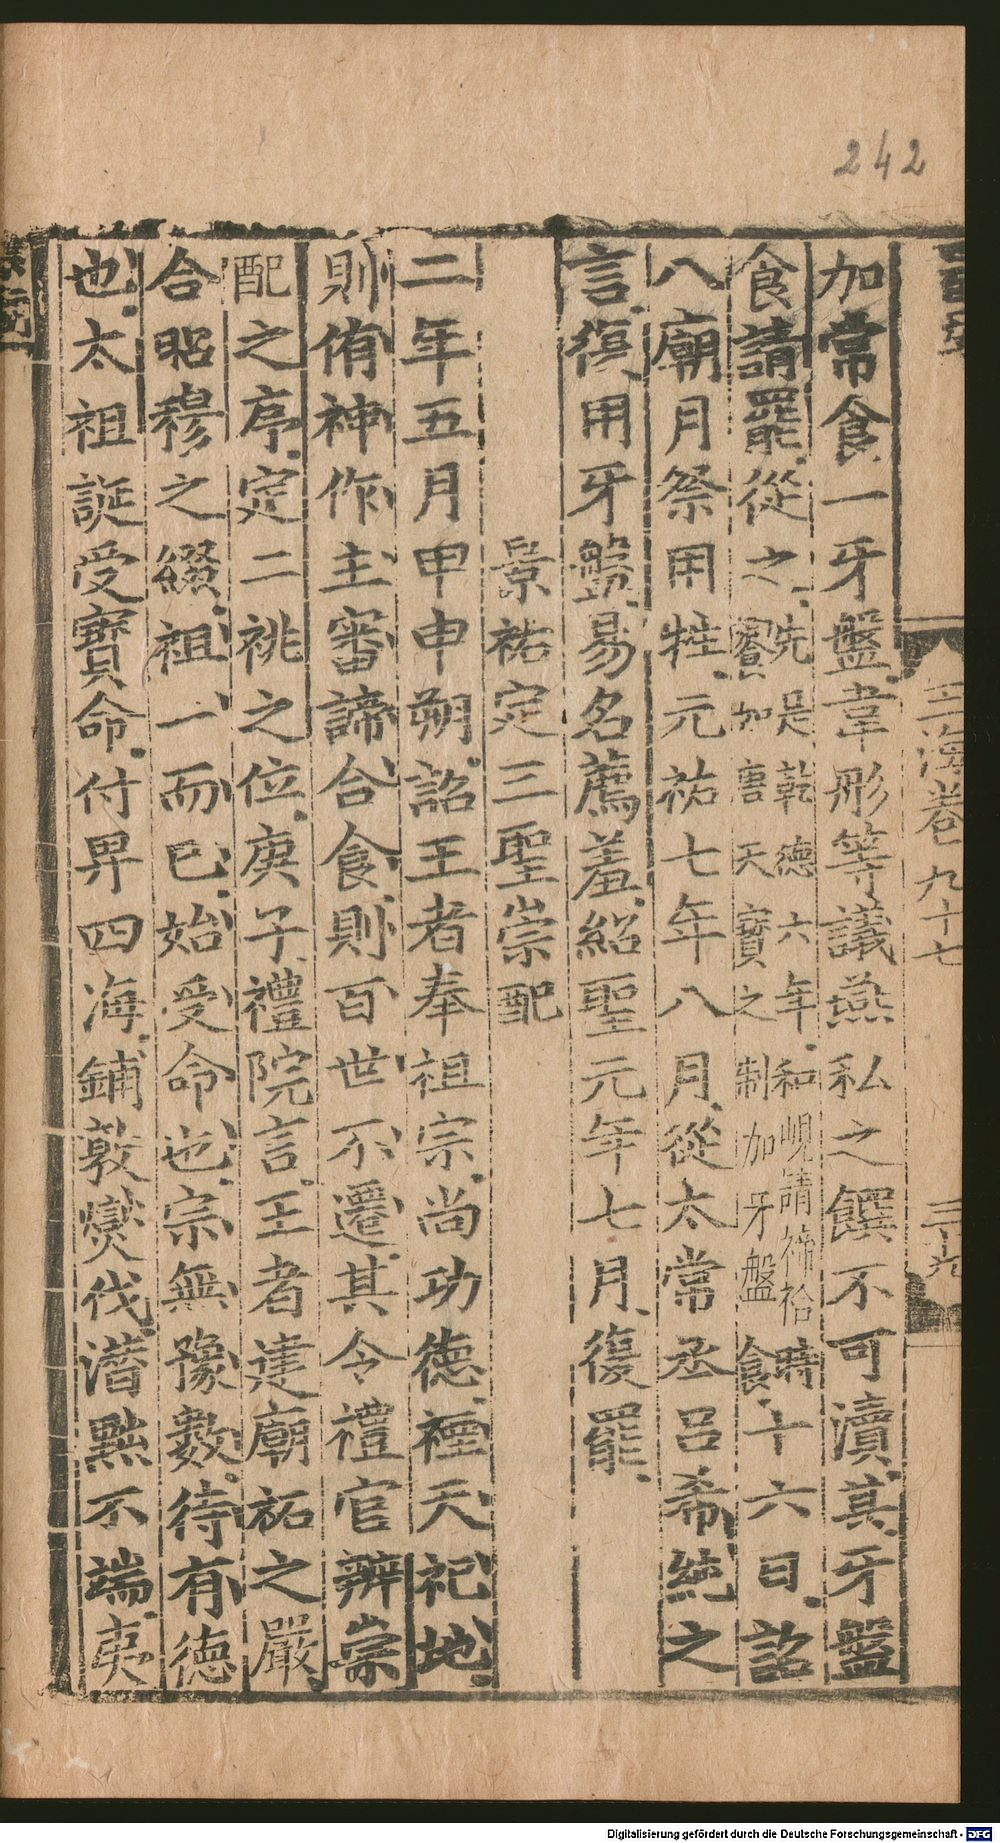 242
玉海卷九十七
三十九
加常食一牙盤韋彤等議燕私之饌不可瀆其牙盤
食請罷從之先是乾德六年和峴請禘祫時饗加唐天寶之制加牙盤食十六日詔
八廟月祭用牲元祐七年八月從太常丞呂希純之
言復用牙盤易名薦羞紹聖元年七月復罷
景祐定三聖崇配
二年五月甲申朔詔王者奉祖宗尚功德禋天祀地
則侑神作主審諦合食則百世不遷其令禮官辨崇
配之序定二祧之位庚子禮院言王者建廟祏之嚴
合昭穆之綴祖一而已始受命也宗無豫數待有德
也太祖誕受寶命付畀四海鋪敦燮伐潛黜不端夷
Digitalisierung gefördert durch die Deutsche Forschungsgemeinschaft - DFG